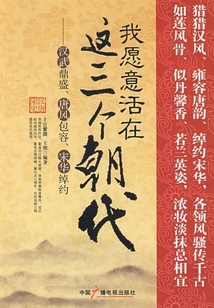 猎猎汉风、雍容唐韵、绰约宋华，各领风骚传千古
如莲风骨、似丹馨香、若兰英姿，浓妆淡抹总相宜
我愿意活在
这三个朝代
——汉武鼎盛、唐风包容、宋华绰约
编著
中国广播电视出版社